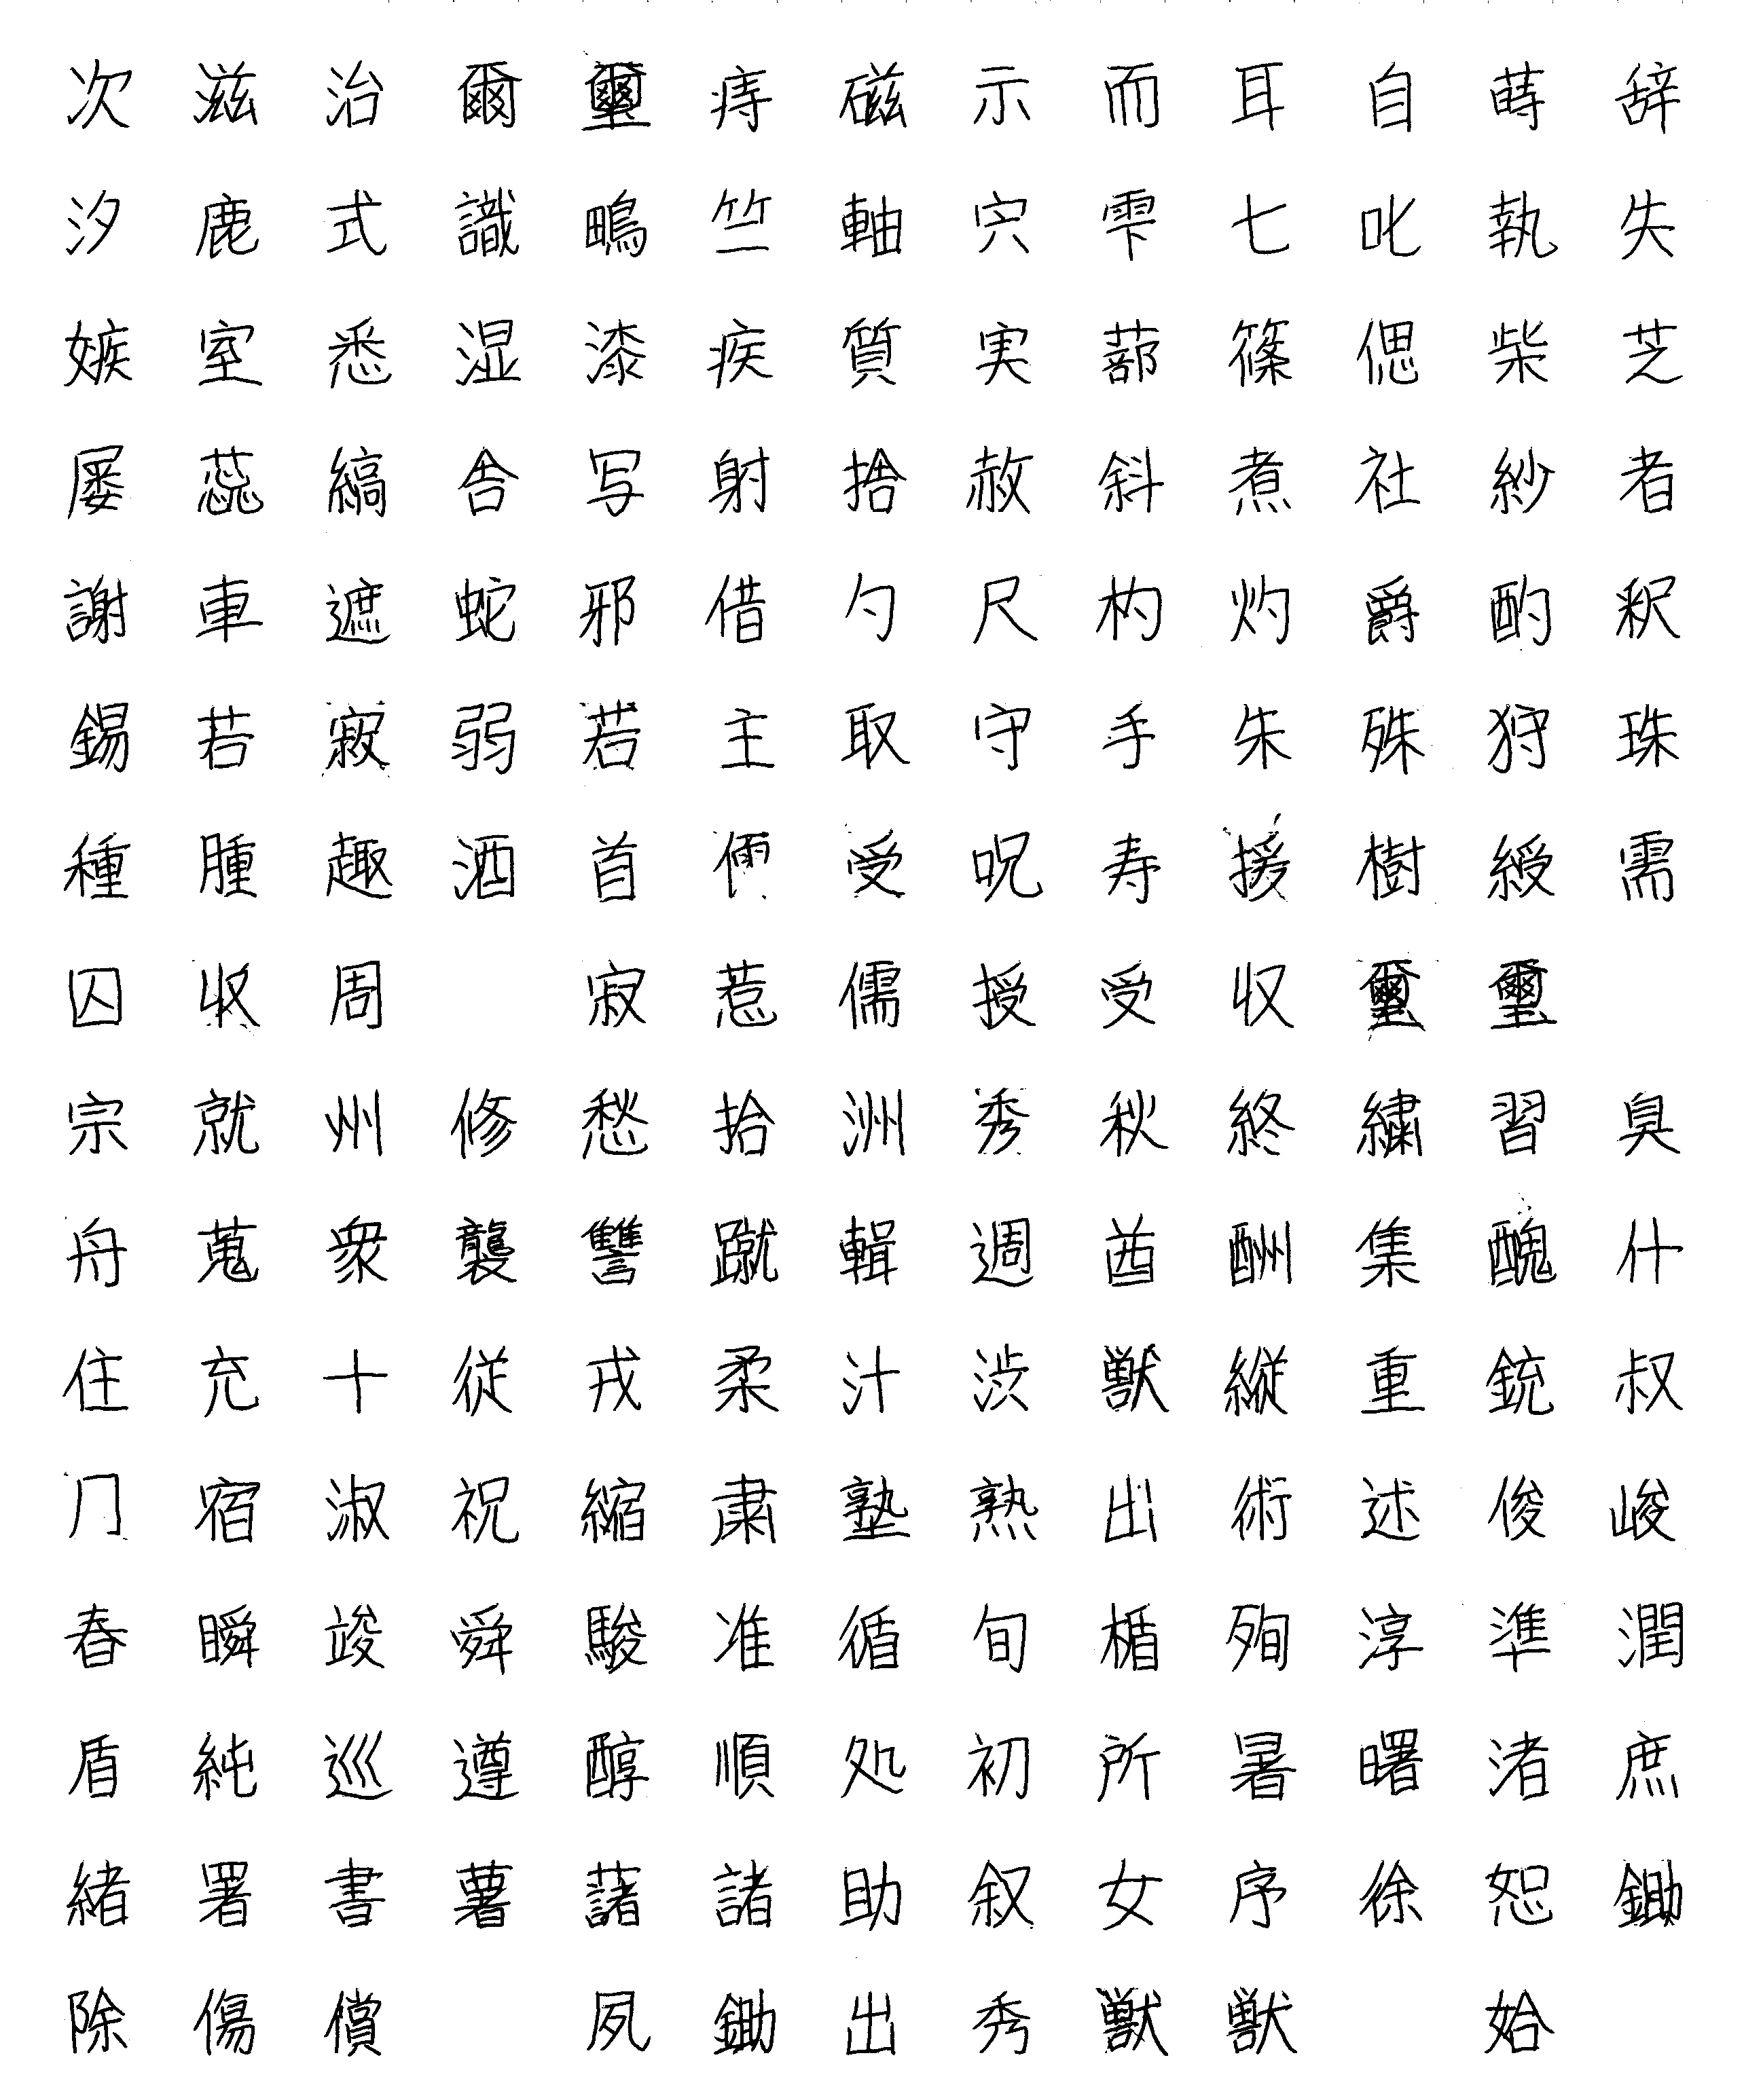 次 滋 治 爾 璽 痔 磁 示 而 耳 自 蒔 辞
汐 鹿 式 識 鴫 竺 軸 宍 雫 七 叱 執 失
嫉 室 悉 湿 漆 疾 質 実 蔀 篠 偲 柴 芝
屡 蕊 縞 舎 写 射 捨 赦 斜 煮 社 紗 者
謝 車 遮 蛇 邪 借 勺 尺 杓 灼 爵 酌 釈
錫 若 寂 弱 若 主 取 守 手 朱 殊 狩 珠
種 腫 趣 酒 首 受 呪 寿 援 樹 綬 需
囚 収 周 寂 惹 儒 授 受 収 璽 璽
宗 就 州 修 愁 拾 洲 秀 秋 終 繍 習 臭
舟 蒐 衆 襲 讐 蹴 輯 週 酋 酬 集 醜 什
住 充 十 従 戎 柔 汁 渋 獣 縦 重 銃 叔
宿 淑 祝 縮 粛 塾 熟 出 術 述 俊 峻
春 瞬 竣 舜 駿 准 循 旬 楯 殉 淳 準 潤
盾 純 巡 遵 醇 順 処 初 所 暑 曙 渚 庶
緒 署 書 薯 藷 諸 助 叙 女 序 徐 恕 鋤
除 傷 償 夙 鋤 出 秀 獣 獣 姶